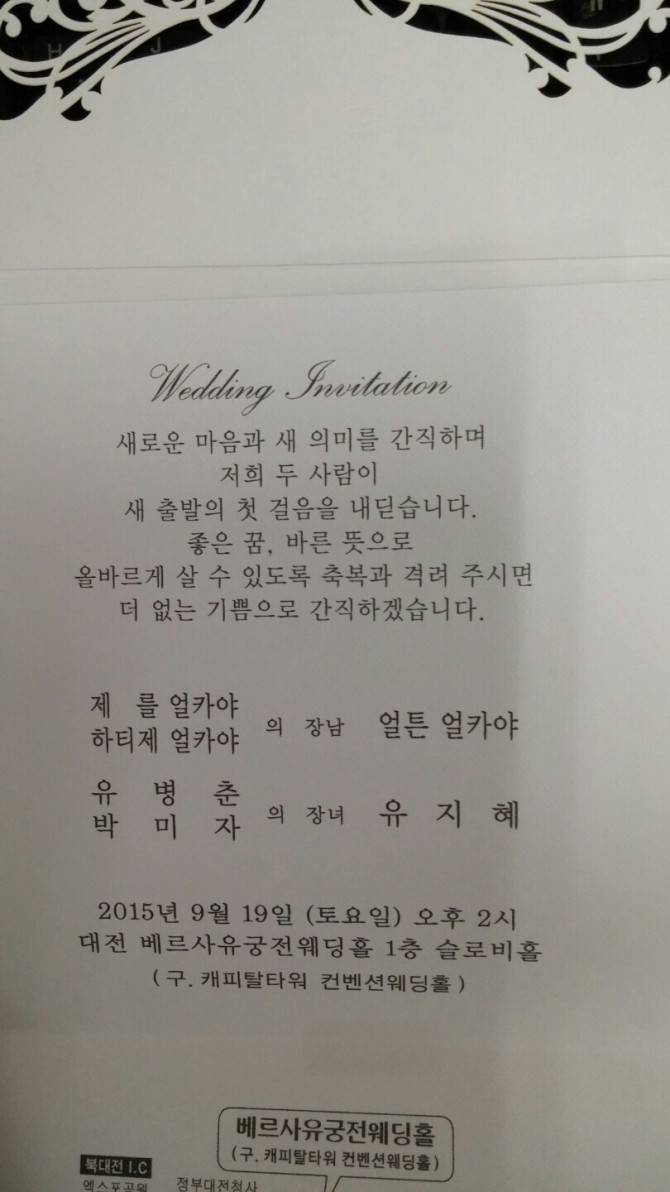 Wedding Invitation
새로운 마음과 새 의미를 간직하며
저희 두 사람이
새 출발의 첫 걸음을 내딛습니다.
좋은 꿈, 바른 뜻으로
올바르게 살 수 있도록 축복과 격려 주시면
더 없는 기쁨으로 간직하겠습니다.
제 를 얼카야
하티제 얼카야
의 장남 얼튼 얼카야
유 병 춘
박 미 자
의 장녀 유 지 혜
2015년 9월 19일 (토요일) 오후 2시
대전 베르사유궁전웨딩홀 1층 슬로비홀
(구. 캐피탈타워 컨벤션웨딩홀)
베르사유궁전웨딩홀
(구. 캐피탈타워 컨벤션웨딩홀)
북대전 I.C
엑스포공원
정부대전청사